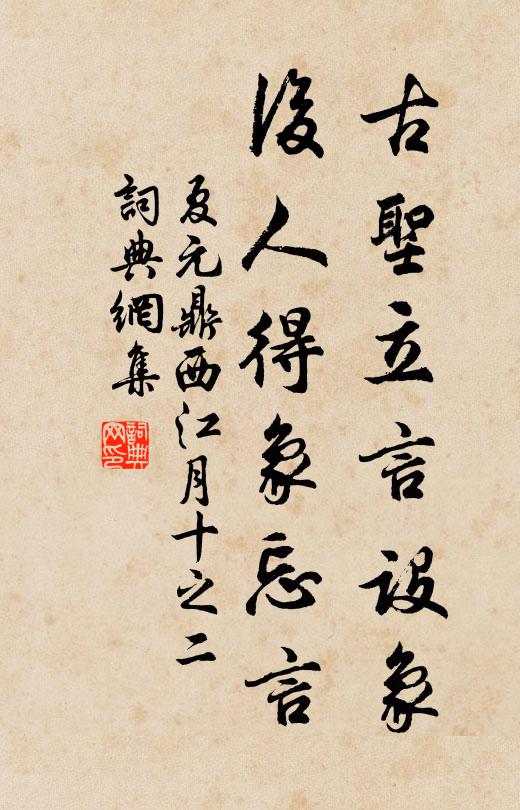 古聖立言設象
後人得象忘言
夏元鼎西江月十之二
詞典網集
詞典網印